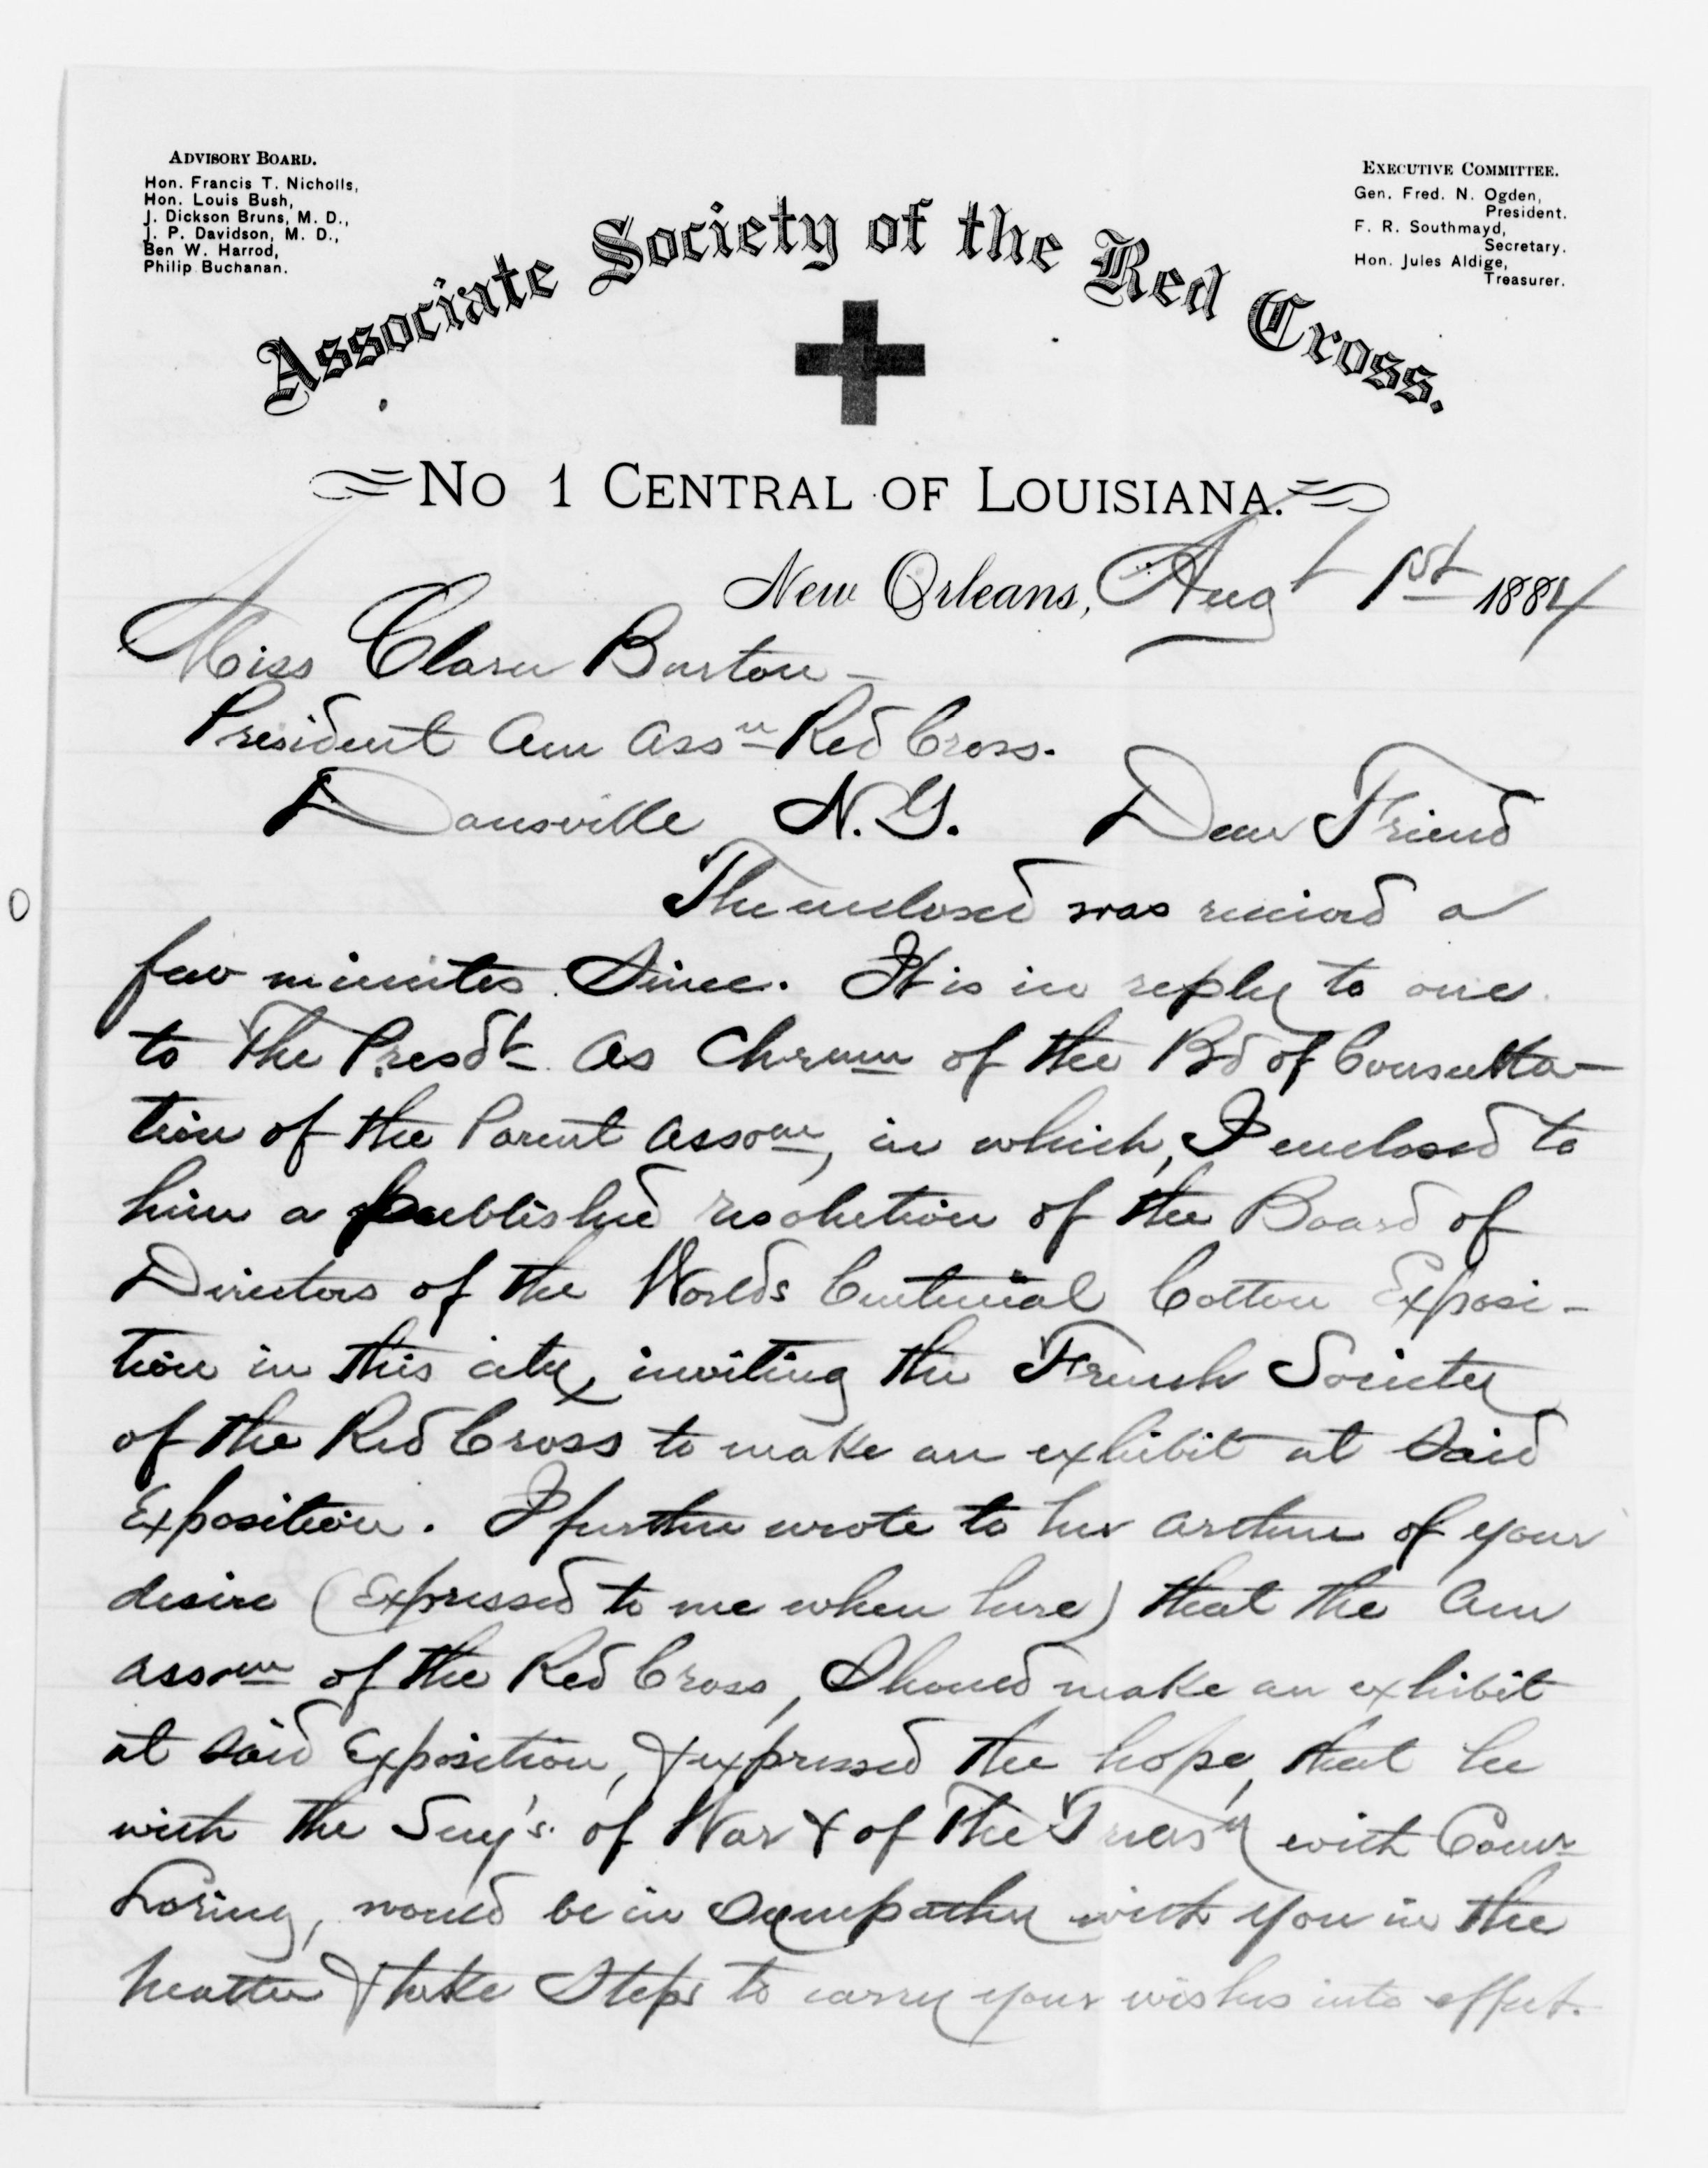 ADVISORY BOARD.
Hon. Francis T. Nicholls,
Hon. Louis Bush,
J. Dickson Bruns, M. D.,
J. P. Davidson, M. D.,
Ben W. Harrod,
Philip Buchanan.
EXECUTIVE COMMITTEE.
Gen. Fred. N. Ogden,
President.
F. R. Southmayd,
Secretary.
Hon. Jules Aldige,
Treasurer.
Associate Society of the Red Cross.
No 1 CENTRAL OF LOUISIANA.
New Orleans, Augt 1st 1884
Miss Clara Barton -
President Am Assn Red Cross.
Dansville N.Y. Dear Friend
The enclosed was recieved a
few minutes since. It is in reply to one
to The Presdt as Chrmn of the Bd of Consulta-
tion of the Parent Assocn, in which, I enclosed to
him a published resolution of the Board of
Directors of the Worlds Centenial Cotton Exposi-
tion in this city, inviting the French Society
of the Red Cross to make an exhibit at said
Exposition. I further wrote to Arthur of your
desire (expressed to me when here) that the Am
Assocn of the Red Cross, should make an exhibit
at said Exposition, & expressed the hope, that he
with the Secy's. of War & of The Treasy with Comr
Loring, would be in sympathy with you in the
matter & take steps to carry your wishes into effect.